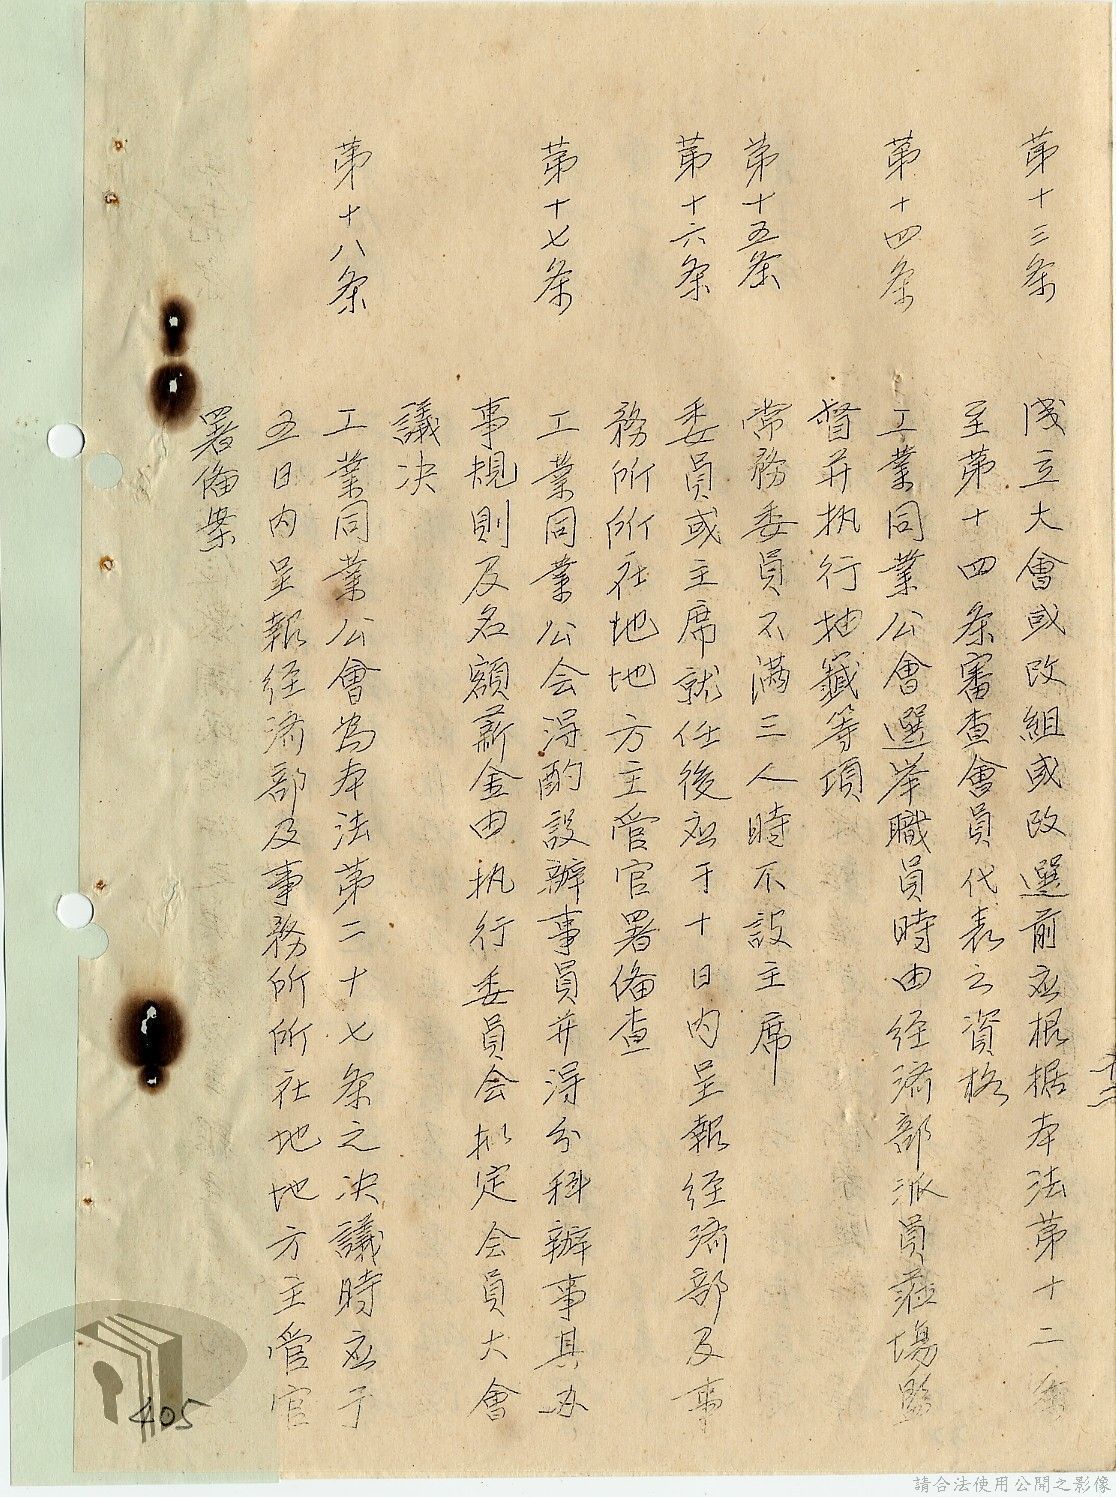 十二
第十三条 成立大會或改組或改選前应根据本法第十二条
至第十四条審查會員代表之資格
第十四条 工業同業公會選举職員時由経济部派員蒞場監
督并执行抽籤等項
第十五条 常務委員不满三人時不設主席
第十六条 委員或主席就任後应于十日内呈報経济部及事
務所所在地地方主管官署俻查
第十七条 工業同業公会得酌設辦事員并得分科辦事其办
事規則及名額薪金由执行委員会拟定会員大會
議决
第十八条 工業同業公會為本法第二十七条之决議時应于
五日内呈報経济部及事務所所在地地方主管官
署俻案
405
請合法使用公開之影像